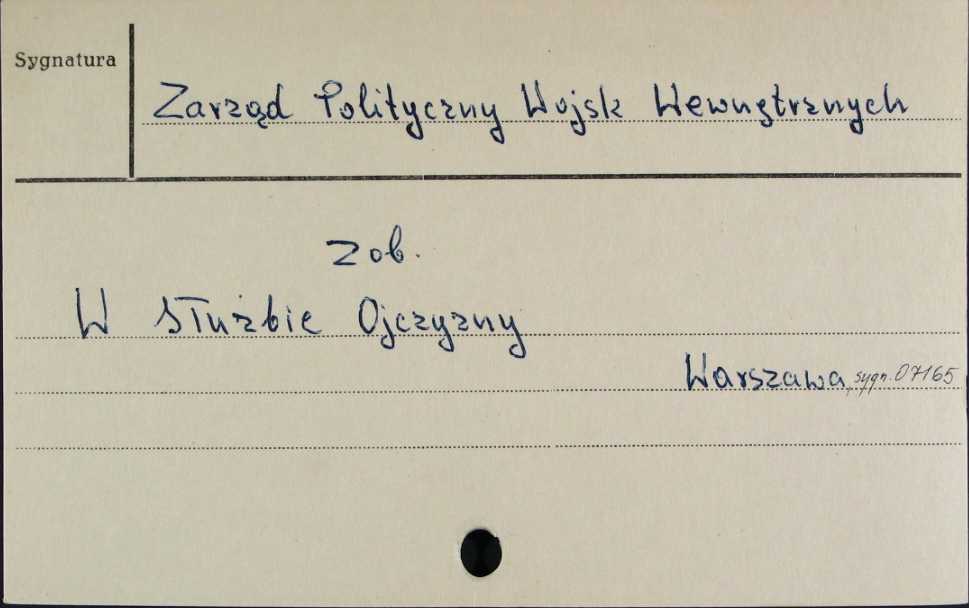 Sygnatura
Zarząd Polityczny Wojsk Wewnętrznych
zob.
W służbie Ojczyzny
Warszawa, sygn. 07165